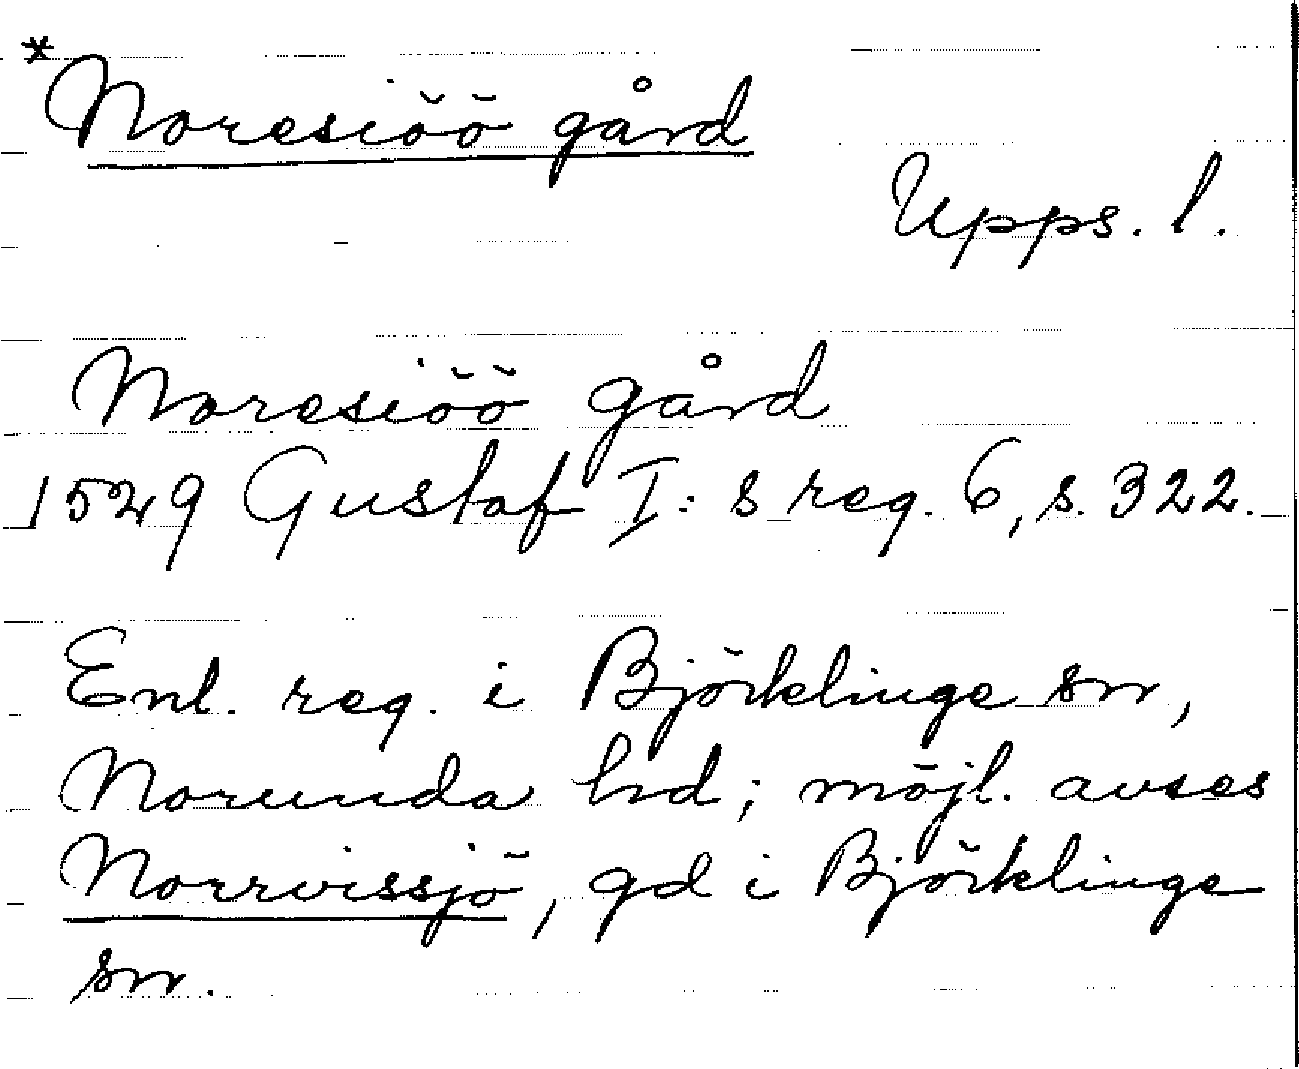 *Noresiöö gård
Upps. l.
Noresiöö gård
1529 Gustaf I:s reg. 6, s. 322.
Enl. reg. i Björklinge sn,
Norunda hd; möjl. avses
Norrvissjö, gd i Björklinge
sn.